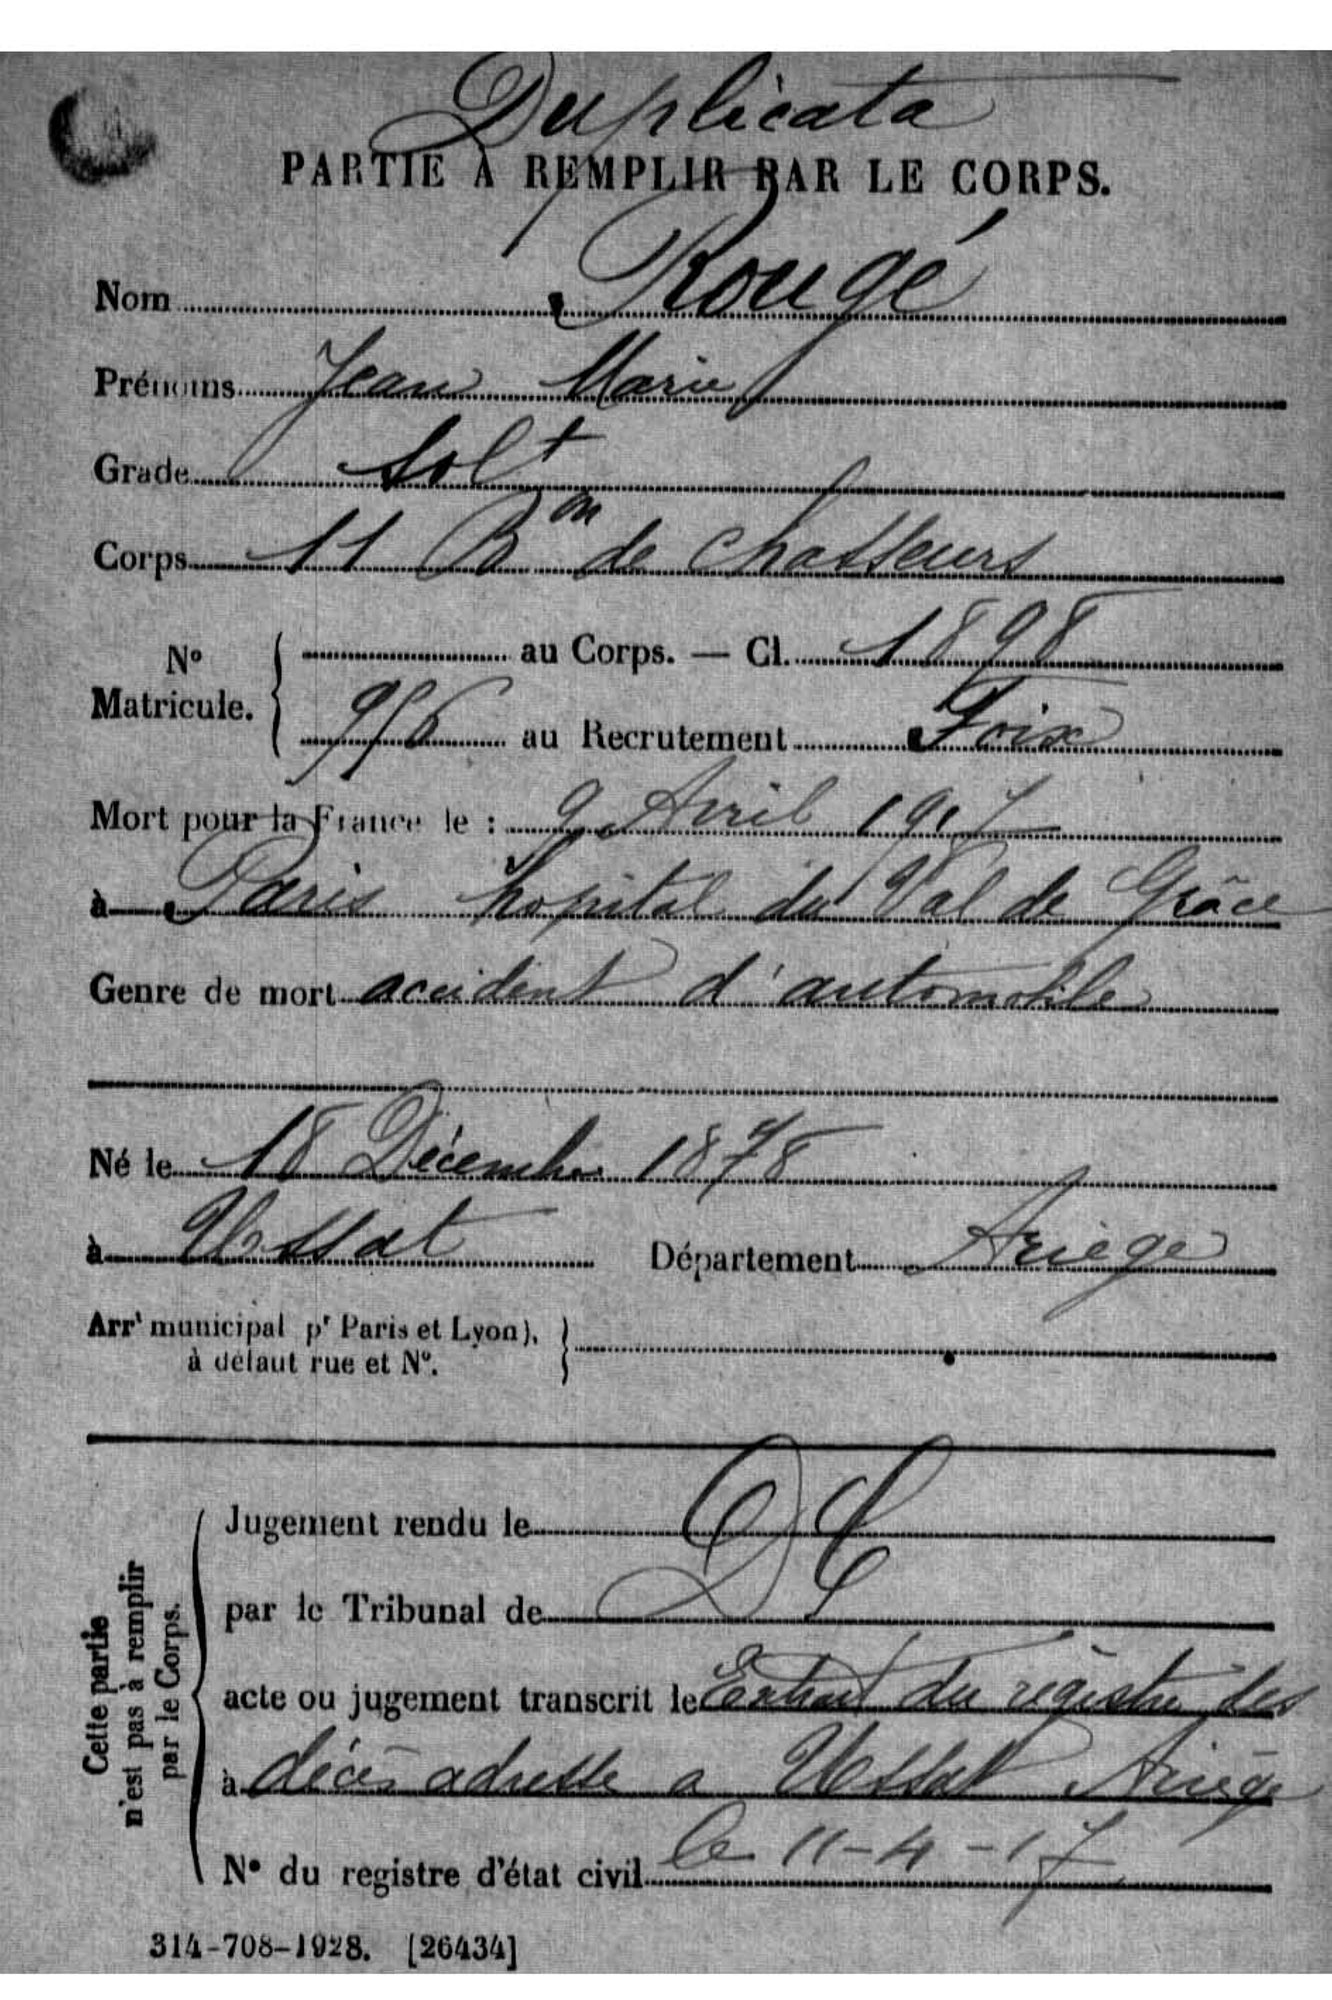 Duplicata
PARTIE À REMPLIR PAR LE CORPS.
Nom Rougé
Prénoms Jean Marie
Grade Solt
Corps 11 Bon de Chasseurs
No Matricule. au Corps. — Cl. 1898
956 au Recrutement Foix
Mort pour la France le : 9 Avril 1917
à Paris hopital du Val de Grâce
Genre de mort accident d'automobile
Né le 18 Décembre 1878
à Ussat Département Ariege
Arrt municipal pr Paris et Lyon),
à défaut rue et No.
Cette partie
n'est pas à remplir
par le Corps.
Jugement rendu le
par le Tribunal de
acte ou jugement transcrit le Extrait du registre des
à décès adressé a Ussat Ariège
No du registre d'état civil le 11-4-17
314-708-1928. [26434]